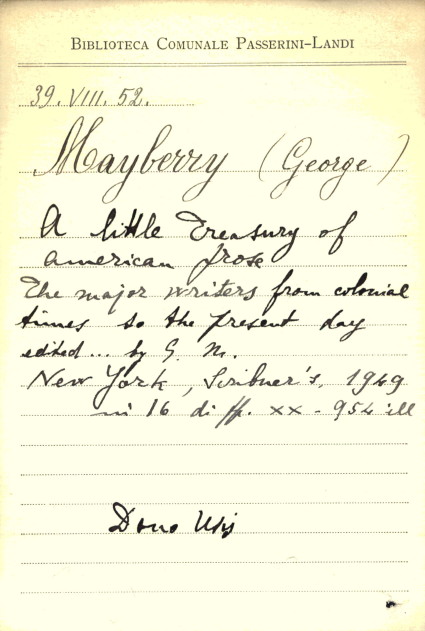 BIBLIOTECA COMUNALE PASSERINI-LANDI
39. VIII. 52.
Mayberry (George)
A little Treasury of
american prose
The major writers from colonial
times to the present day
edited... by G. M.
New York, Scribner's, 1949
in 16 di pp. XX - 954 ill
Dono Usis